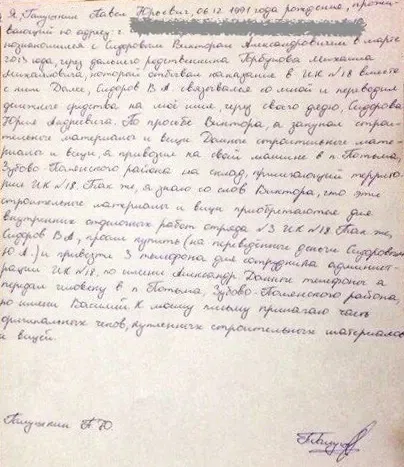 Я, Галушкин Павел Юрьевич, 06.12.1991 года рождения, прожи-
вающий по адресу: г.
познакомился с Сидоровым Виктором Александровичем в марте
2013 года, через дальнего родственника Горбунова Михаила
Михайловича, который отбывал наказание в ИК №18 вместе
с ним. Далее, Сидоров В.А связывался со мной и переводил
денежные средства на моё имя, через своего дядю, Сидорова
Юрия Андреевича. По просьбе Виктора, я закупал строи-
тельные материалы и вещи. Данные строительные мате-
риалы и вещи, я привозил на своей машине в п. Потьма,
Зубово-Полянского района на склад, прилегающий террито-
рии ИК №18. Так же, я знаю со слов Виктора, что эти
строительные материалы и вещи приобретаются для
внутренних отделочных работ отряда №3 ИК №18. Так же,
Сидоров В.А., просил купить (на переведённые деньги Сидоровым
Ю.А.) и привезти 3 телефона для сотрудника админист-
рации ИК №18, по имени Александр. Данные телефоны я
передал человеку в п. Потьма, Зубово-Полянского района,
по имени Василий. К моему письму прилагаю часть
оригинальных чеков, купленных строительных материалов
и вещей.
П.Ю.